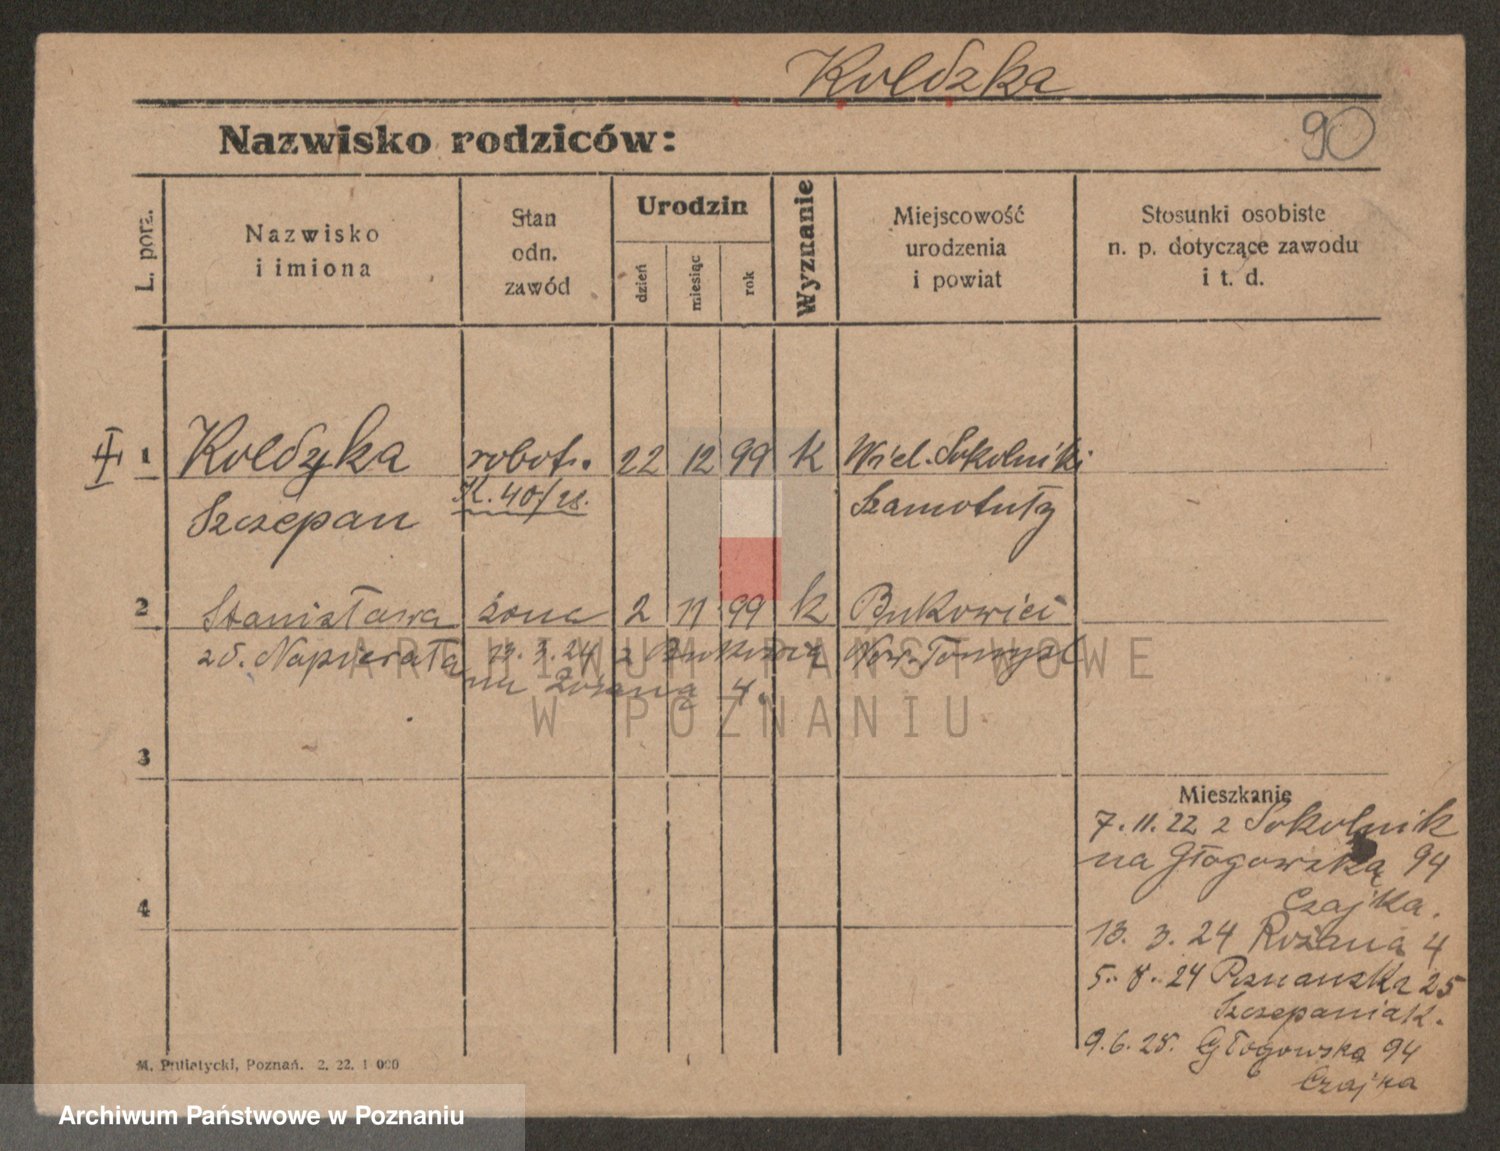 Koldzka
Nazwisko rodziców:
90
L. porz.
Nazwisko
i imiona
Stan
odn.
zawód
Urodzin
dzień
miesiąc
rok
Wyznanie
Miejscowość
urodzenia
i powiat
Stosunki osobiste
n. p. dotyczące zawodu
i t. d.
II 1 Koldzka robotn. 22 12 99 k Wiel. Sokolniki
Szczepan K. 40/28. Szamotuły
2 Stanisława żona 2 11 99 k Bukowiec
zd. Napierała 13. 3. 24 z Now-Tomysl
4.
3
4
Mieszkanie
7. 11. 22 z Sokolnik
na Głogowską 94
Czajka.
13. 3. 24 Różana 4
5. 8. 24 Poznanska 25
Szczepaniak.
9. 6. 25. Głogowska 94
Czajka
M. Putiatycki, Poznań. 2. 22. 1 000
ARCHIWUM PAŃSTWOWE
W POZNANIU
Archiwum Państwowe w Poznaniu